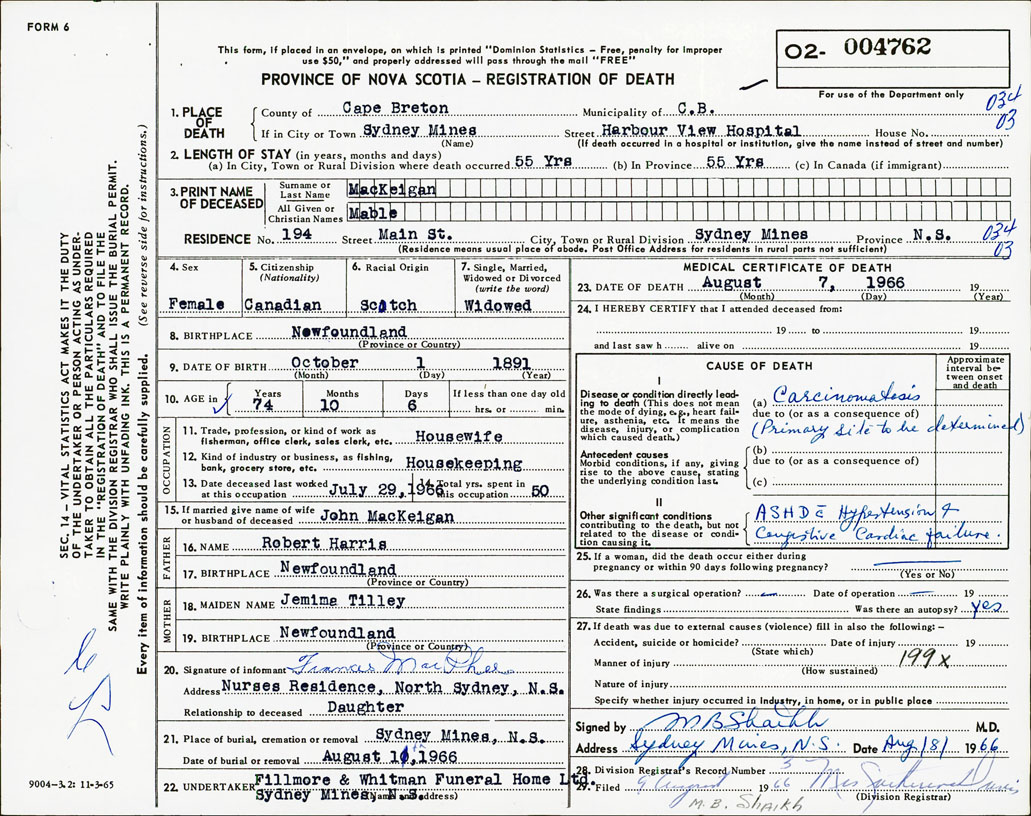 FORM 6
This form, if placed in an envelope, on which is printed "Dominion Statistics – Free, penalty for improper
use $50," and properly addressed will pass through the mail "FREE"
PROVINCE OF NOVA SCOTIA – REGISTRATION OF DEATH
02- 004762
For use of the Department only
034
03
1. PLACE OF DEATH
County of Cape Breton Municipality of C.B.
If in City or Town Sydney Mines Street Harbour View Hospital House No.
(Name) (If death occurred in a hospital or institution, give the name instead of street and number)
2. LENGTH OF STAY (in years, months and days)
(a) In City, Town or Rural Division where death occurred 55 Yrs (b) In Province 55 Yrs (c) In Canada (if immigrant)
3. PRINT NAME OF DECEASED
Surname or Last Name MacKeigan
All Given or Christian Names Mable
RESIDENCE No. 194 Street Main St. City, Town or Rural Division Sydney Mines Province N.S.
(Residence means usual place of abode. Post Office Address for residents in rural parts not sufficient)
034
03
4. Sex
Female
5. Citizenship
(Nationality)
Canadian
6. Racial Origin
Scotch
7. Single, Married,
Widowed or Divorced
(write the word)
Widowed
8. BIRTHPLACE Newfoundland
(Province or Country)
9. DATE OF BIRTH October 1 1891
(Month) (Day) (Year)
10. AGE in Years Months Days If less than one day old
74 10 6 hrs. or min.
OCCUPATION
11. Trade, profession, or kind of work as
fisherman, office clerk, sales clerk, etc. Housewife
12. Kind of industry or business, as fishing,
bank, grocery store, etc. Housekeeping
13. Date deceased last worked
at this occupation July 29, 1966
14. Total yrs. spent in
this occupation 50
15. If married give name of wife
or husband of deceased John MacKeigan
FATHER
16. NAME Robert Harris
17. BIRTHPLACE Newfoundland
(Province or Country)
MOTHER
18. MAIDEN NAME Jemima Tilley
19. BIRTHPLACE Newfoundland
(Province or Country)
20. Signature of informant Frances MacPhee
Address Nurses Residence, North Sydney, N.S.
Relationship to deceased Daughter
21. Place of burial, cremation or removal Sydney Mines, N.S.
Date of burial or removal August 10th, 1966
22. UNDERTAKER Fillmore & Whitman Funeral Home Ltd.
Sydney Mines, N.S.
(Name and address)
MEDICAL CERTIFICATE OF DEATH
23. DATE OF DEATH August 7, 1966 19
(Month) (Day) (Year)
24. I HEREBY CERTIFY that I attended deceased from:
19 to 19
and last saw h alive on 19
CAUSE OF DEATH
Approximate interval between onset and death
I
Disease or condition directly leading
to death (This does not mean
the mode of dying, e.g., heart failure,
asthenia, etc. It means the
disease, injury, or complication
which caused death.)
(a) Carcinomatosis
due to (or as a consequence of)
(Primary site to be determined)
Antecedent causes
Morbid conditions, if any, giving
rise to the above cause, stating
the underlying condition last.
(b)
due to (or as a consequence of)
(c)
II
Other significant conditions
contributing to the death, but not
related to the disease or condition
causing it.
ASHD c̄ Hypertension &
Congestive Cardiac failure.
25. If a woman, did the death occur either during
pregnancy or within 90 days following pregnancy?
(Yes or No)
26. Was there a surgical operation? — Date of operation — 19
State findings Was there an autopsy? yes
27. If death was due to external causes (violence) fill in also the following: –
Accident, suicide or homicide? Date of injury 19
(State which)
Manner of injury 199x
(How sustained)
Nature of injury
Specify whether injury occurred in industry, in home, or in public place
Signed by MB Shaikh M.D.
Address Sydney Mines, N.S. Date Aug/8/ 1966
28. Division Registrar's Record Number
29. Filed 9 August 1966 Mrs
(Division Registrar)
M.B. Shaikh
SEC. 14 – VITAL STATISTICS ACT MAKES IT THE DUTY
OF THE UNDERTAKER OR PERSON ACTING AS UNDERTAKER
TO OBTAIN ALL THE PARTICULARS REQUIRED
IN THE "REGISTRATION OF DEATH" AND TO FILE THE
SAME WITH THE DIVISION REGISTRAR WHO SHALL ISSUE THE BURIAL PERMIT.
WRITE PLAINLY WITH UNFADING INK. THIS IS A PERMANENT RECORD.
Every item of information should be carefully supplied. (See reverse side for instructions.)
9004-3.2: 11-3-65